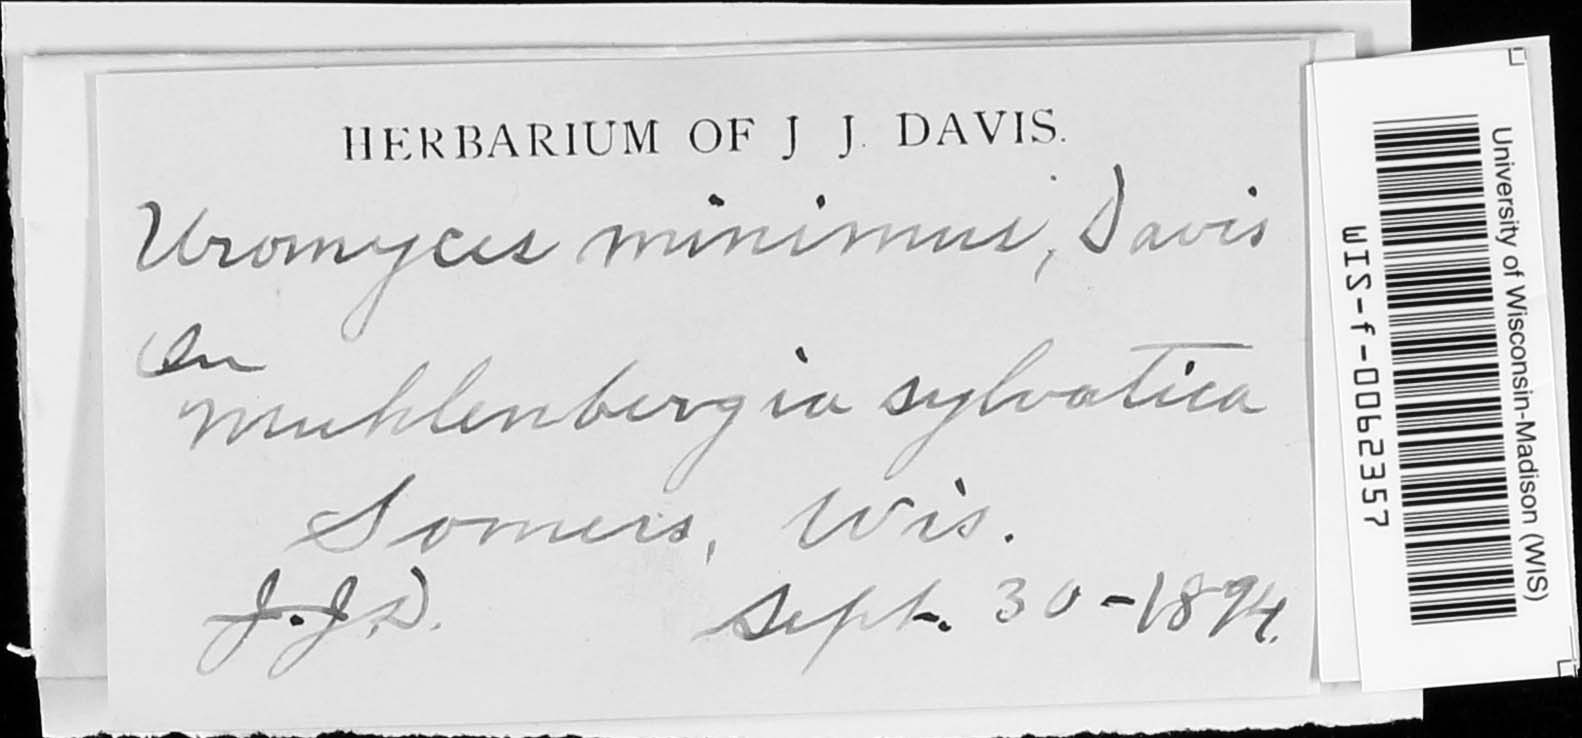 HERBARIUM OF J. J. DAVIS.
Uromyces minimus, Davis
On
Muhlenbergia sylvatica
Somers, Wis.
J.J.D. Sept. 30-1894.
University of Wisconsin-Madison (WIS)
WIS-f-0062357